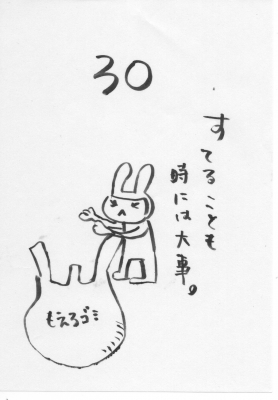 30
すてることも
時には大事。
もえるゴミ